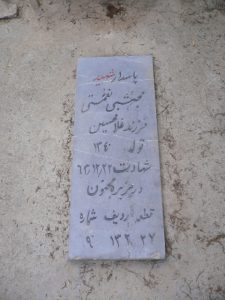 پاسدار شهید
مجتبی نعمتی
فرزند غلامحسین
تولد ۱۳۴۰
شهادت ۶۳/۱۲/۲۲
در جزیره مجنون
قطعه ردیف شماره
۲۷ ۱۳۲ ۹